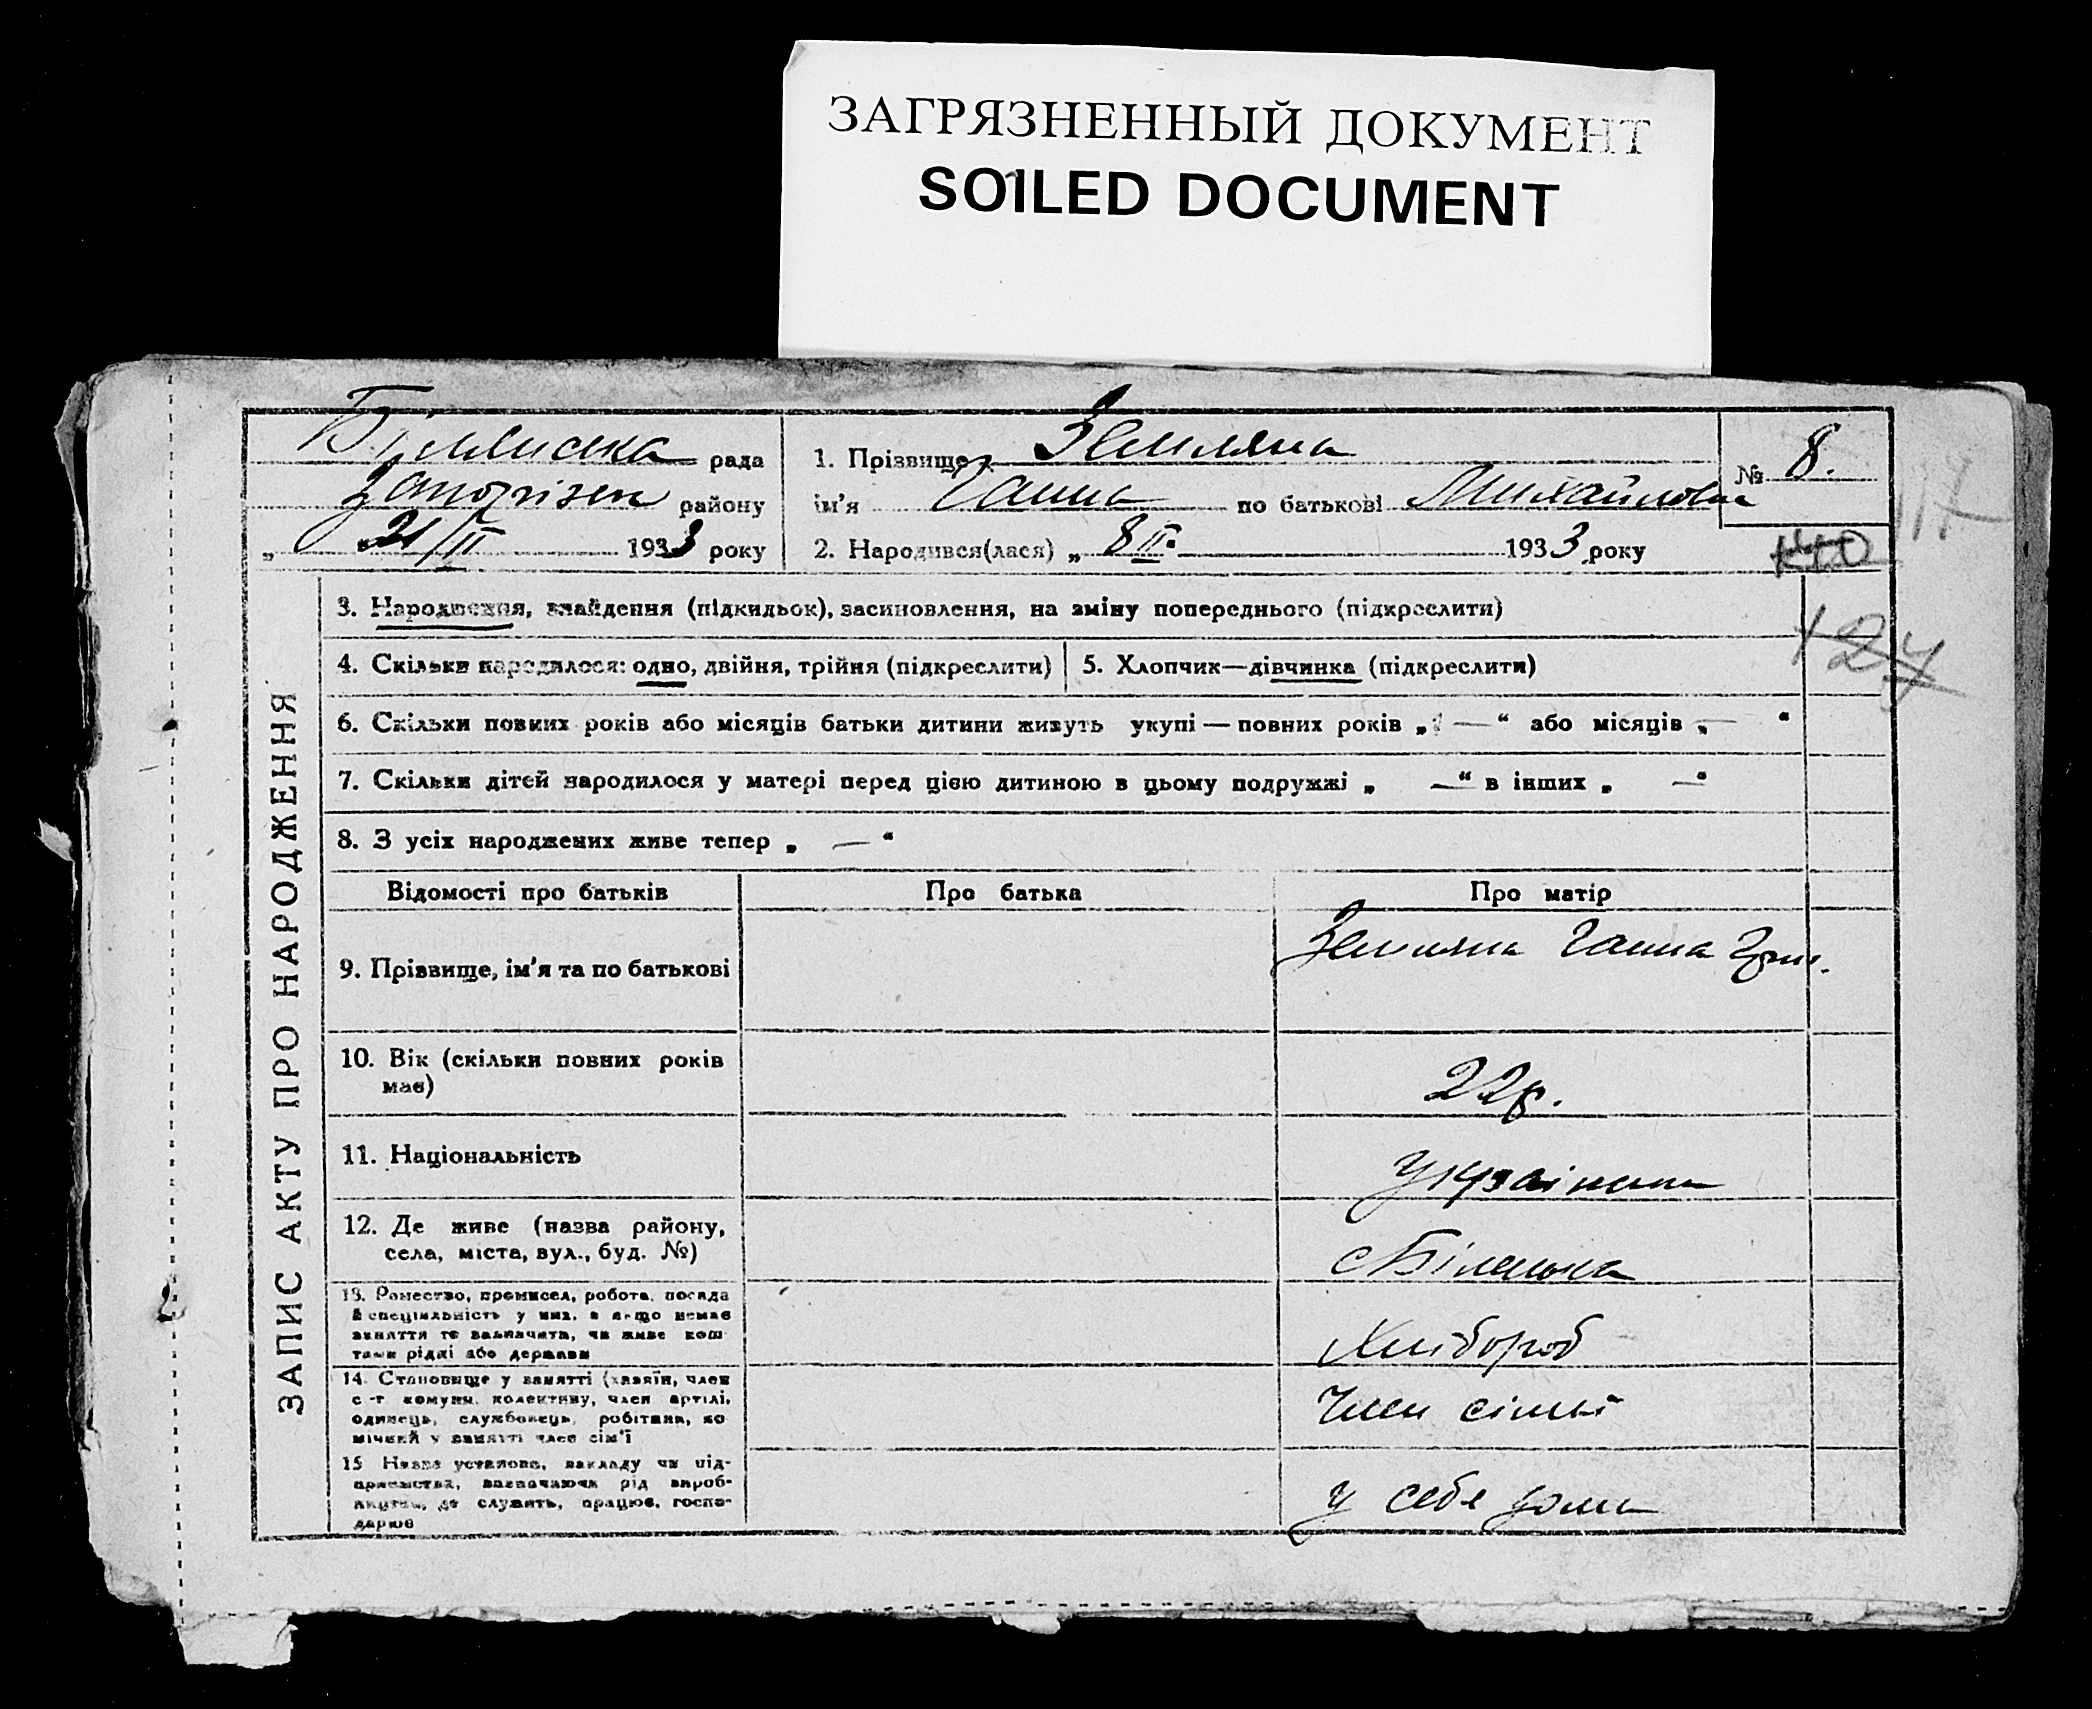 ЗАГРЯЗНЕННЫЙ ДОКУМЕНТ
SOILED DOCUMENT
рада
району
„ 21/II 1933 року
1. Прізвище Земляна
ім'я Ганна по батькові Михайловна
2. Народився(лася) „ 8 II 1933 року
№ 8.
ЗАПИС АКТУ ПРО НАРОДЖЕННЯ
3. Народження, знайдення (підкидьок), засиновлення, на зміну попереднього (підкреслити)
127
4. Скільки народилося: одно, двійня, трійня (підкреслити)
5. Хлопчик—дівчинка (підкреслити)
6. Скільки повних років або місяців батьки дитини живуть укупі — повних років „ — “ або місяців „ — “
7. Скільки дітей народилося у матері перед цією дитиною в цьому подружжі „ — “ в інших „ — “
8. З усіх народжених живе тепер „ — “
Відомості про батьків
Про батька
Про матір
9. Прізвище, ім'я та по батькові
Земляна Ганна Григ.
10. Вік (скільки повних років
має)
22р.
11. Національність
Українка
12. Де живе (назва району,
села, міста, вул., буд. №)
с Біленька
13. Ремество, промисел, робота, посада
й спеціяльність у них, а якщо немає
заняття то зазначити, чи живе кош-
тами рідні або держави
Хлібороб
14. Становище у занятті (хазяїн, член
с-г комуни, колективу, член артілі,
одинець, службовець, робітник, по
мічний у занятті член сім'ї
Член сімьї
15 Назва установи, закладу чи під-
приємства, зазначаючи рід вироб-
ництва, де служить, працює, госпо-
дарює
у себе дома